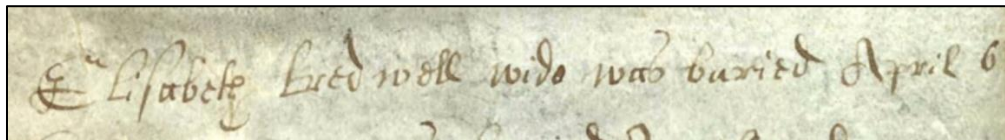 Elisabeth Bredwell wido was buried April 6